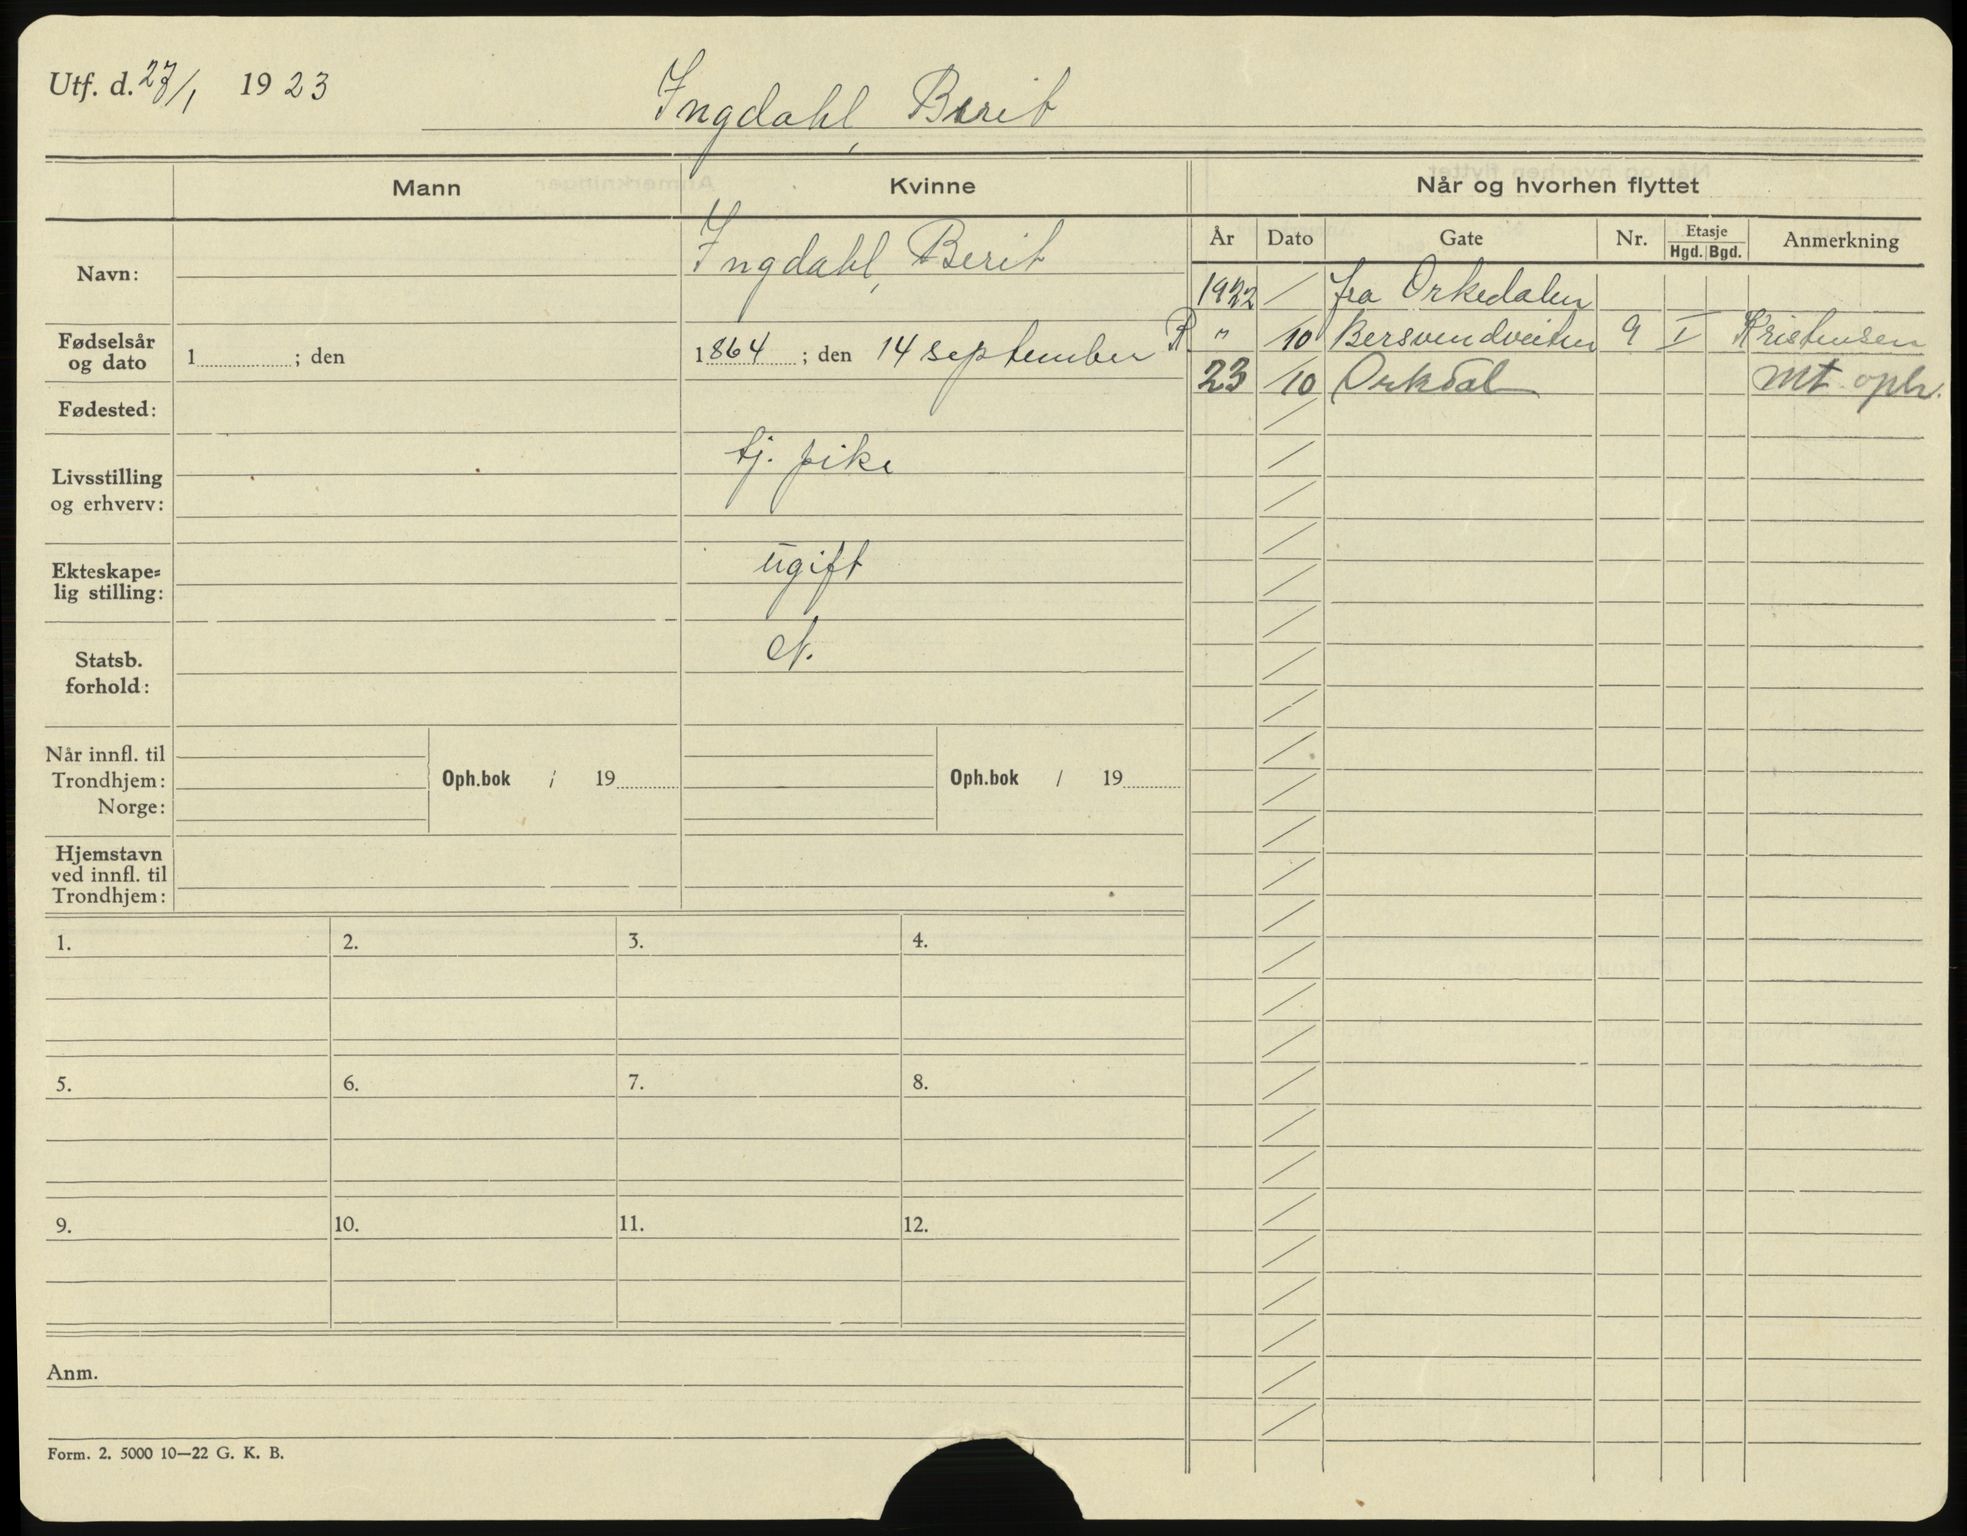 Utf. d. 27/1 1923
Ingdahl, Berit
Mann
Kvinne
Når og hvorhen flyttet
Navn:
Ingdahl, Berit
Fødselsår og dato
1 ; den
1864 ; den 14 september
Fødested:
Livsstilling og erhverv:
tj. pike
Ekteskape=
lig stilling:
ugift
Statsb.
forhold:
N.
Når innfl. til
Trondhjem:
Norge:
Oph.bok / 19
Oph.bok / 19
Hjemstavn
ved innfl. til
Trondhjem:
År Dato Gate Nr. Etasje Anmerkning
Hgd. Bgd.
1922 / fra Orkedalen
R " /10 Bersvendveiten 9 I Kristensen
23 /10 Orkdal Mt. oph.
1. 2. 3. 4.
5. 6. 7. 8.
9. 10. 11. 12.
Anm.
Form. 2. 5000 10—22 G. K. B.